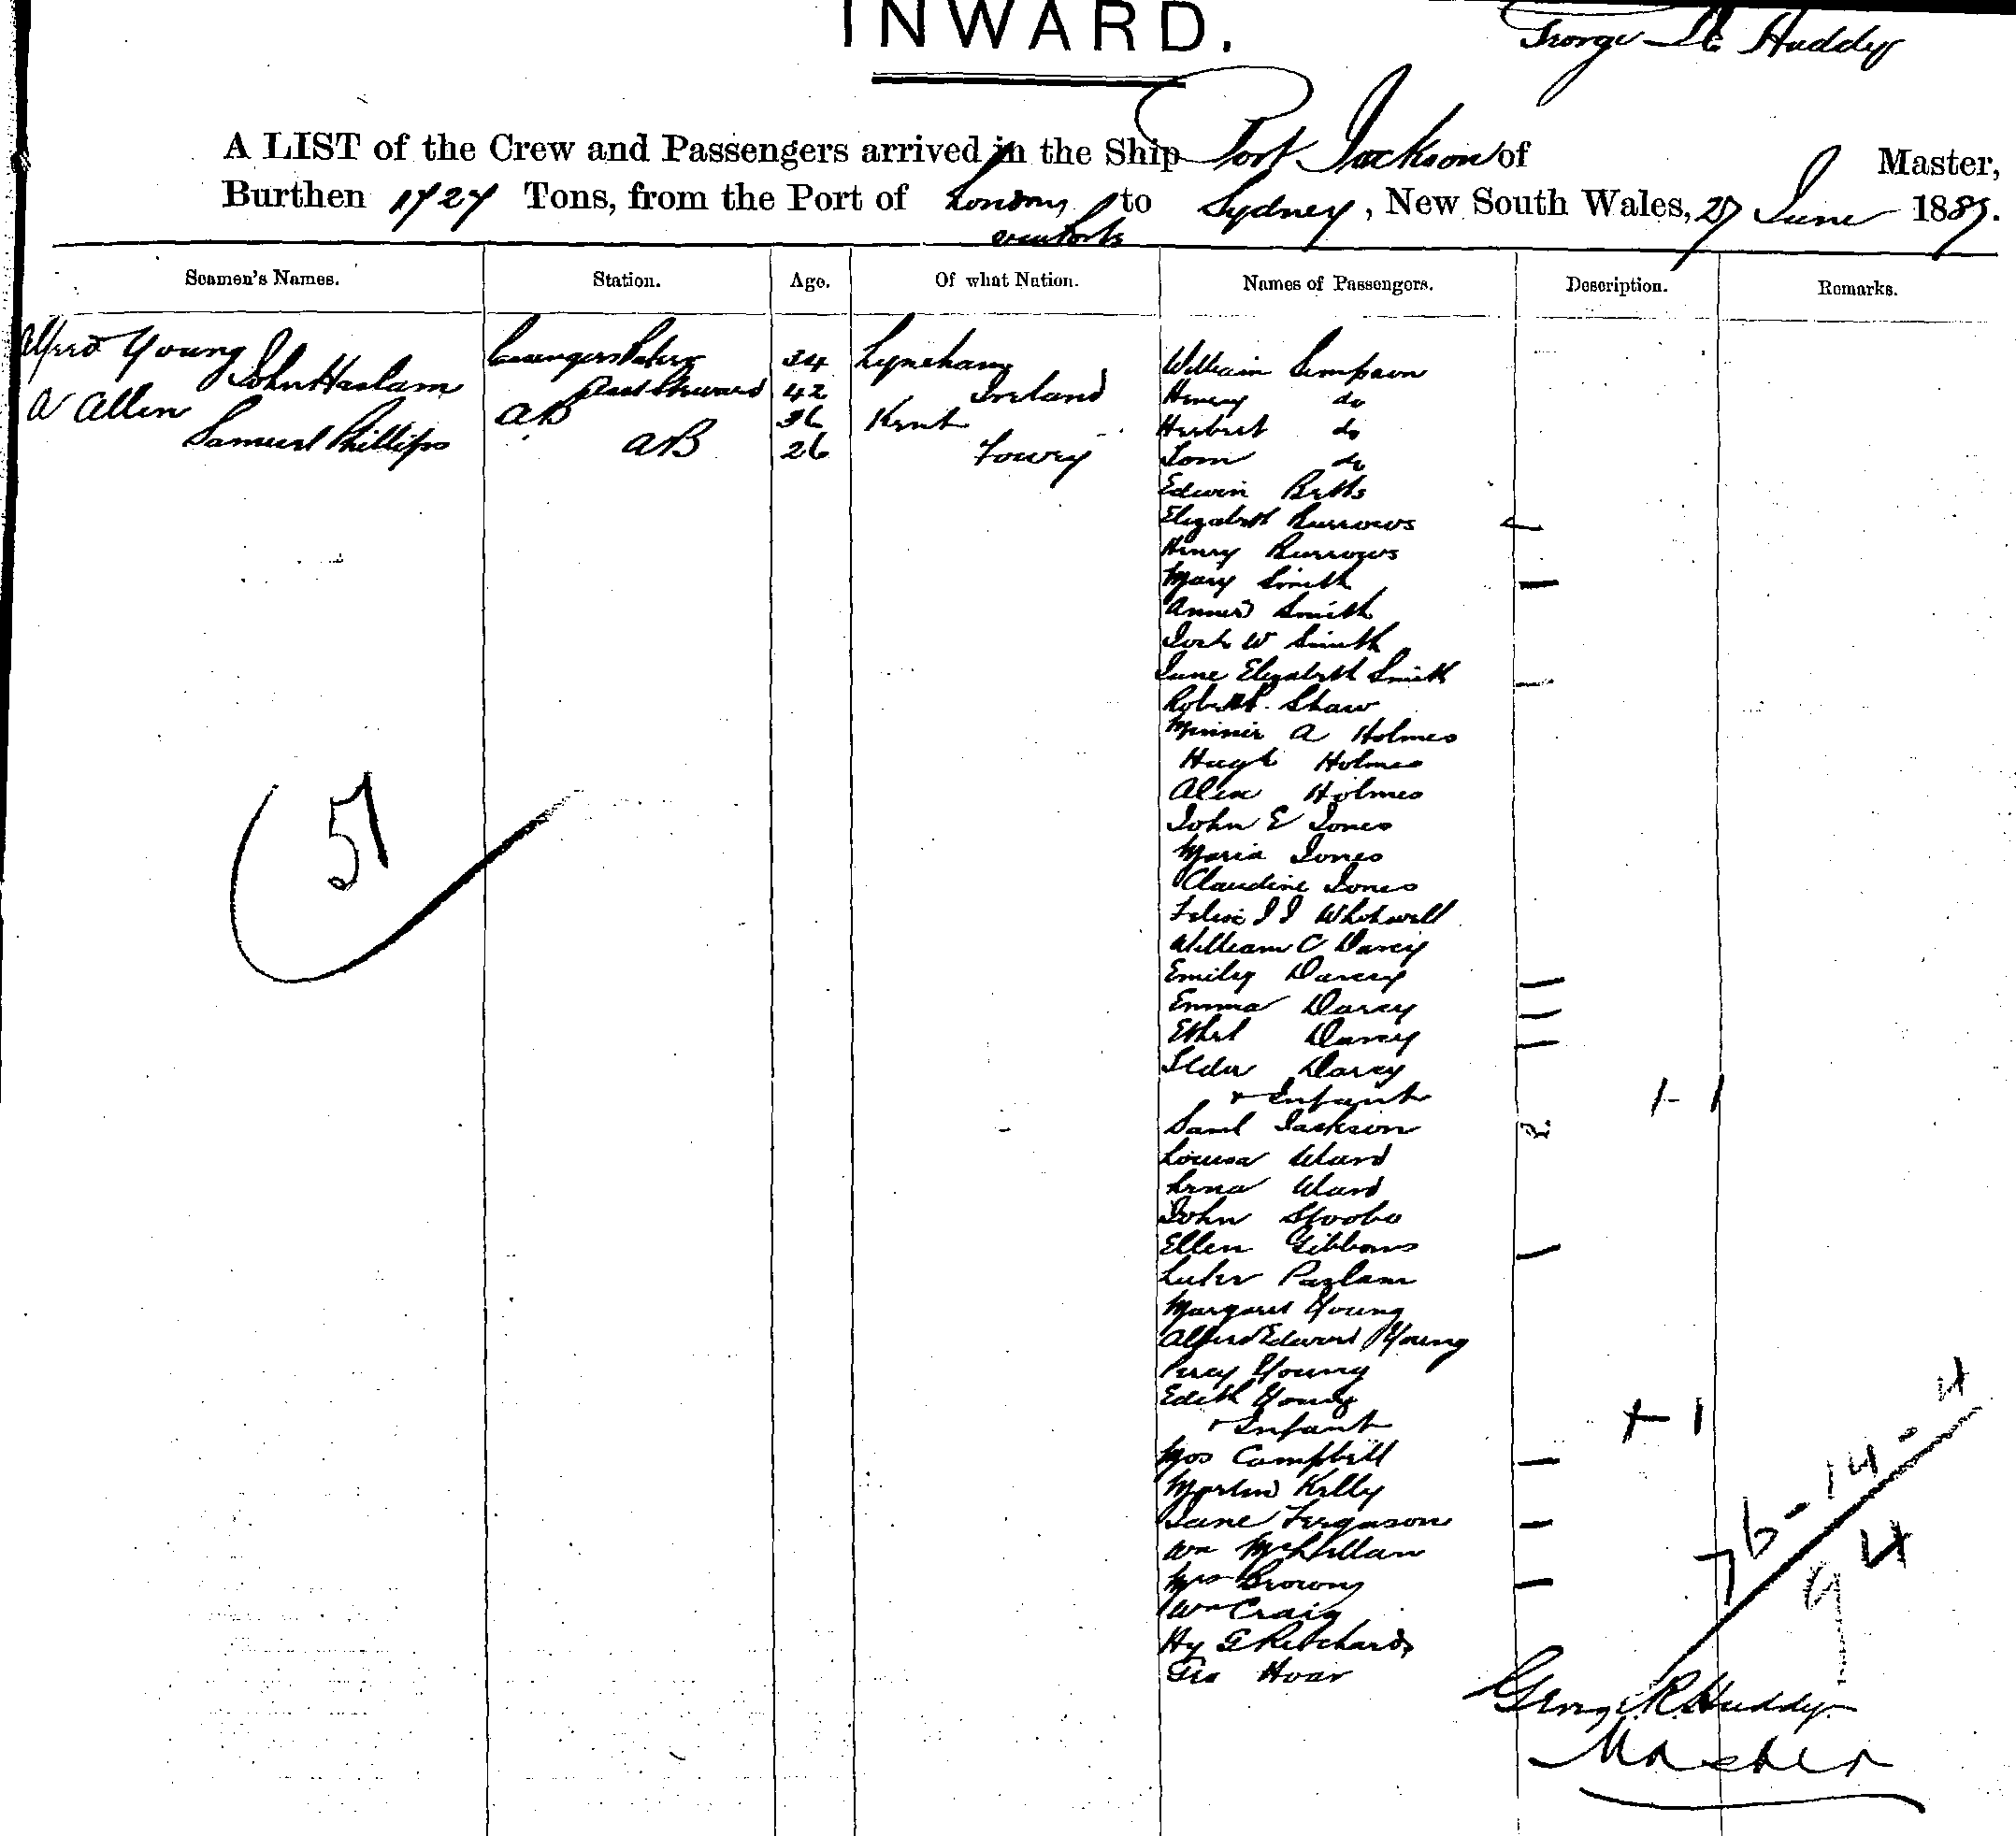 INWARD.
George R Huddy
A LIST of the Crew and Passengers arrived in the Ship Port Jackson of Master,
Burthen Tons, from the Port of London to Sydney, New South Wales, 27 June 1887.
via Ports
Seamen's Names. Station. Age. Of what Nation. Names of Passengers. Description. Remarks.
Alfred Young 34 Lyneham William Simpson
John Haslam Steward 42 Ireland Henry do
A Allen AB 36 Kent Herbert do
Samuel Phillips AB 26 Fowey Tom do
Edwin Betts
Elizabeth Burrows
Henry Burrows
Mary Smith
Smith
W Smith
Jane Elizabeth Smith
Robert Shaw
Minnie A Holmes
Hugh Holmes
Alex Holmes
John E Jones
Maria Jones
51
Claudine Jones
William C Darcy
Emily Darcy
Emma Darcy
Ethel Darcy
Darcy
+ Infant + 1
Saml Jackson
Louisa Ward
Lena Ward
John
Ellen Gibbons
Margaret Young
Alfred Edward Young
Percy Young
Edith Young
+ Infant + 1
Mrs Campbell
Martin Kelly
Jane Ferguson
Wm McLellan
Mrs Brown
Wm Craig
Hy G Pritchard
Geo Hoar
76 - 14 - 4
94
George R. Huddy
Master